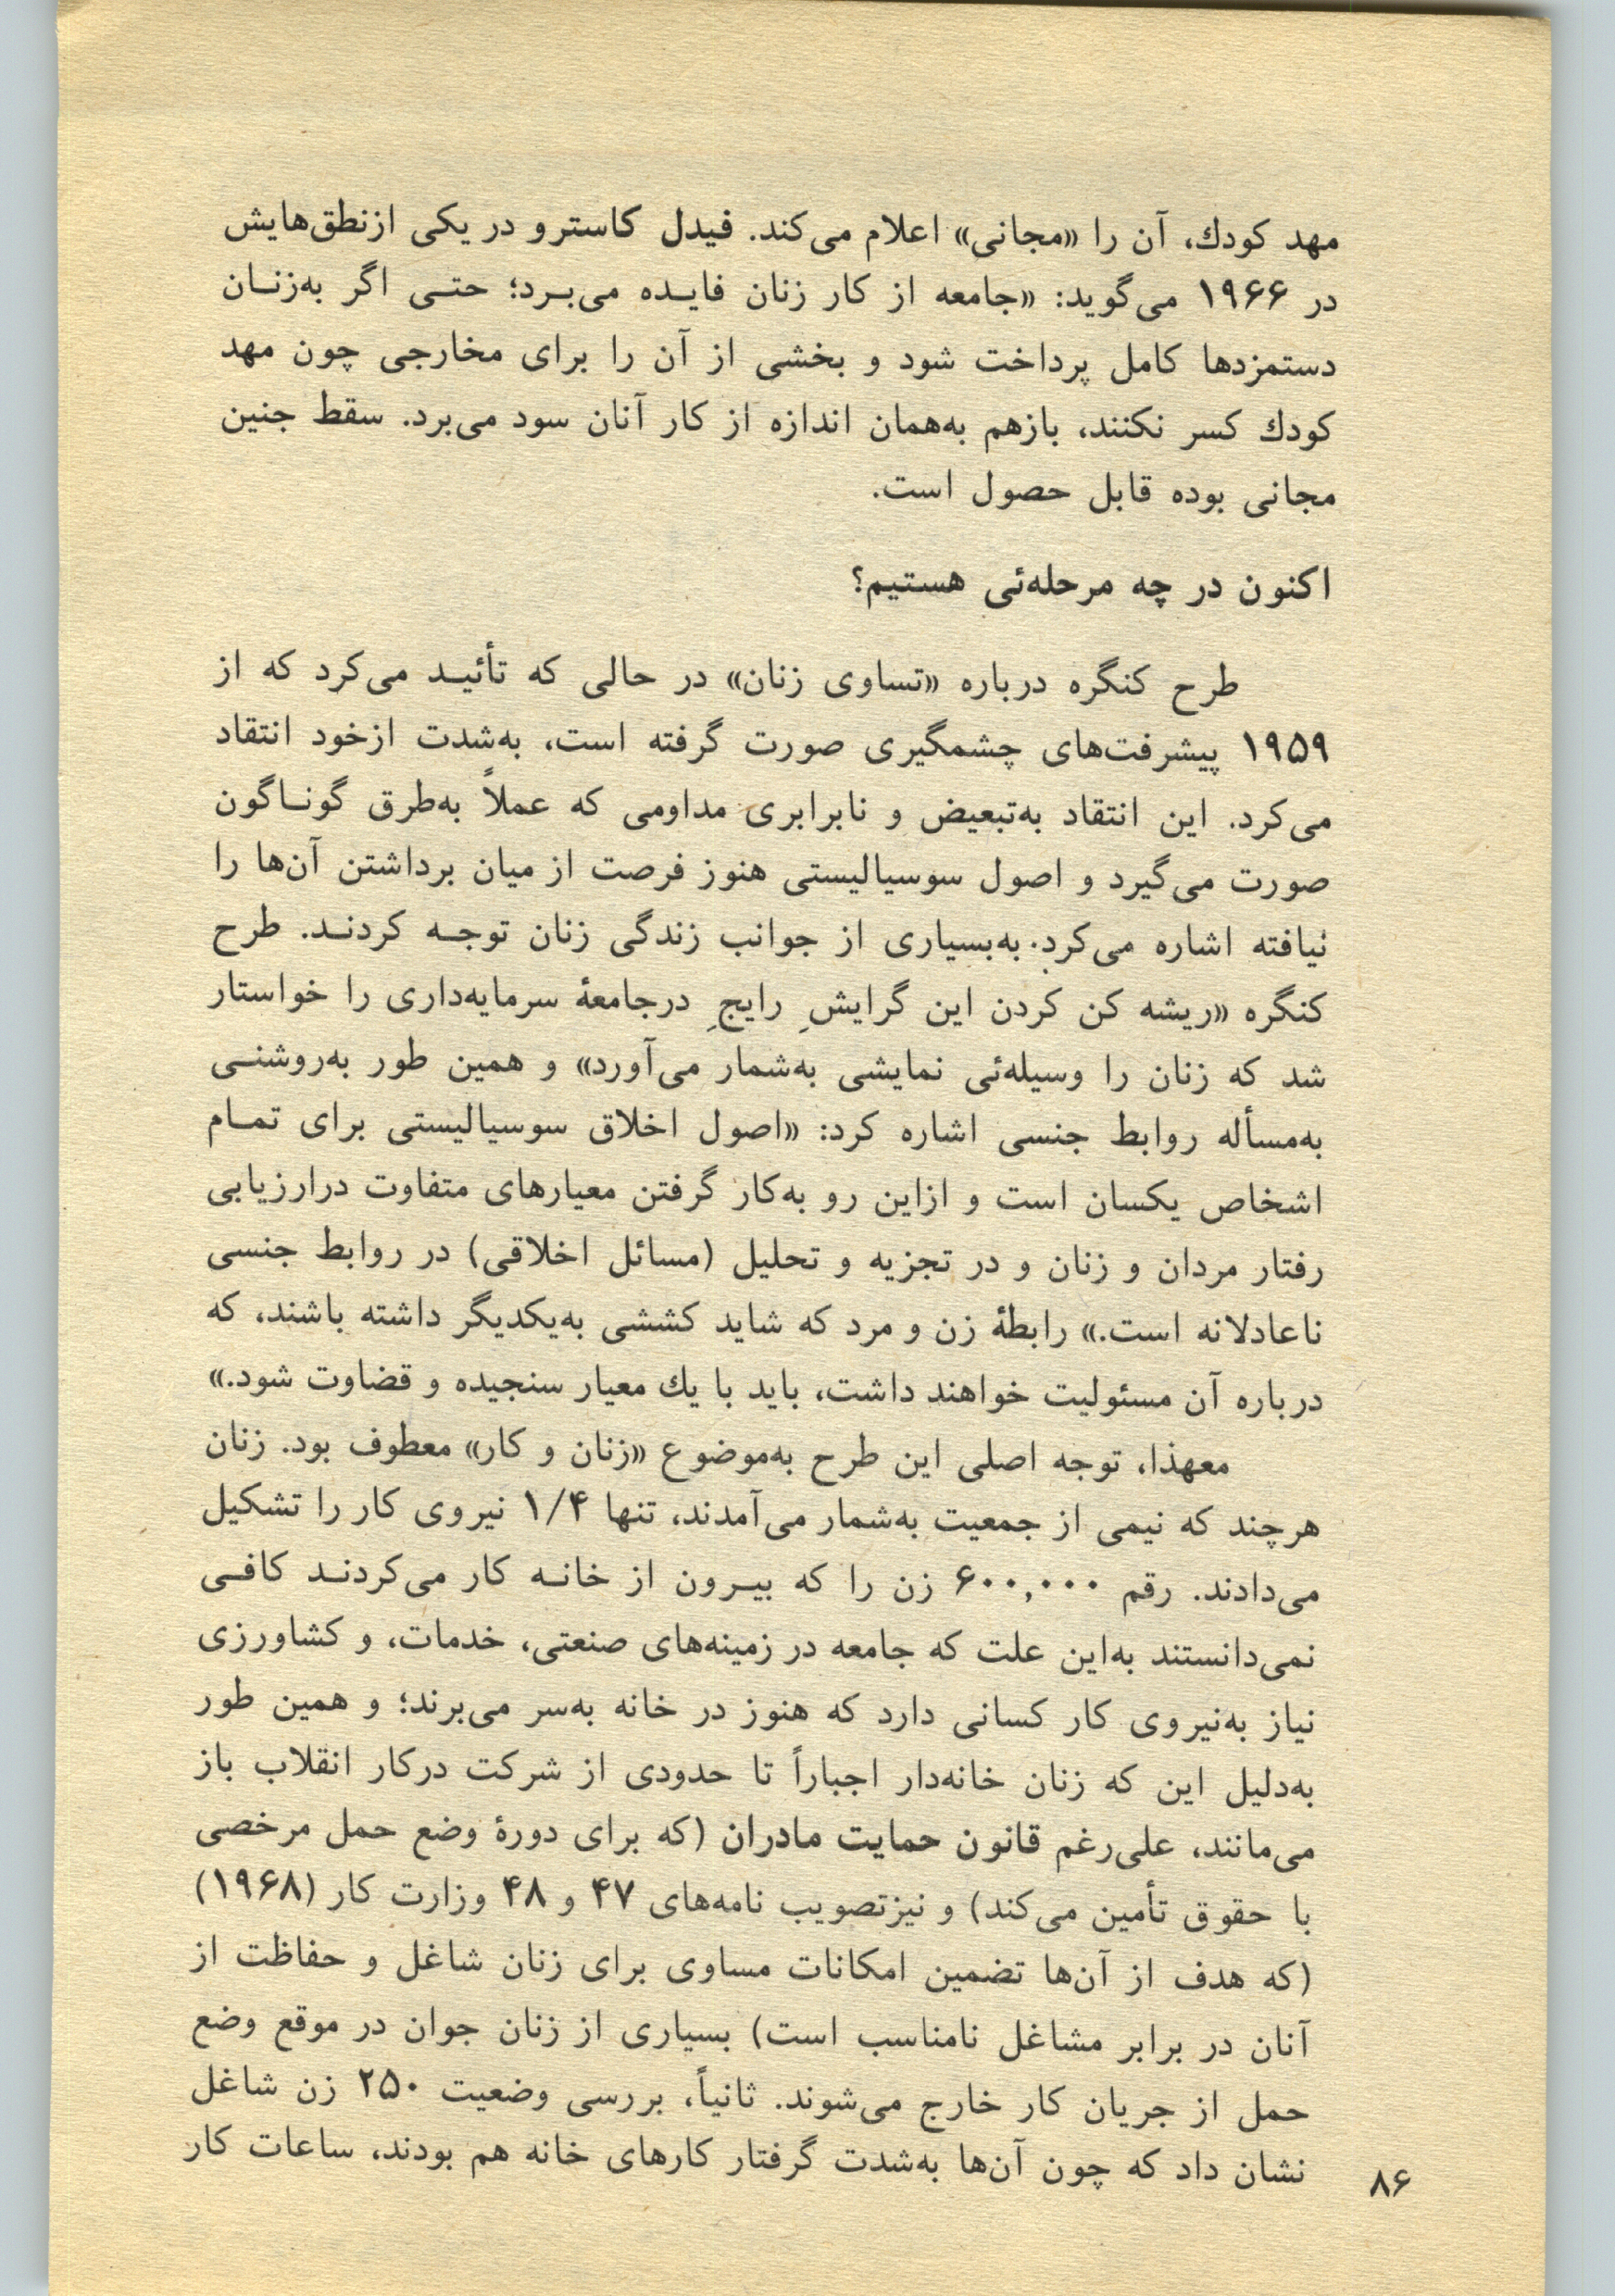 مهد کودك، آن را «مجانی» اعلام می‌کند. فیدل کاسترو در یکی ازنطق‌هایش
در ۱۹۶۶ می‌گوید: «جامعه از کار زنان فایـده می‌بـرد؛ حتـی اگر به‌زنـان
دستمزدها کامل پرداخت شود و بخشی از آن را برای مخارجی چون مهد
کودك کسر نکنند، بازهم به‌همان اندازه از کار آنان سود می‌برد. سقط جنین
مجانی بوده قابل حصول است.
اکنون در چه مرحله‌ئی هستیم؟
طرح کنگره درباره «تساوی زنان» در حالی که تأئیـد می‌کرد که از
۱۹۵۹ پیشرفت‌های چشمگیری صورت گرفته است، به‌شدت ازخود انتقاد
می‌کرد. این انتقاد به‌تبعیض و نابرابری مداومی که عملاً به‌طرق گونـاگون
صورت می‌گیرد و اصول سوسیالیستی هنوز فرصت از میان برداشتن آن‌ها را
نیافته اشاره می‌کرد. به‌بسیاری از جوانب زندگی زنان توجـه کردنـد. طرح
کنگره «ریشه کن کردن این گرایشِ رایجِ درجامعهٔ سرمایه‌داری را خواستار
شد که زنان را وسیله‌ئی نمایشی به‌شمار می‌آورد» و همین طور به‌روشنـی
به‌مسأله روابط جنسی اشاره کرد: «اصول اخلاق سوسیالیستی برای تمـام
اشخاص یکسان است و ازاین رو به‌کار گرفتن معیارهای متفاوت درارزیابی
رفتار مردان و زنان و در تجزیه و تحلیل (مسائل اخلاقی) در روابط جنسی
ناعادلانه است.» رابطهٔ زن و مرد که شاید کششی به‌یکدیگر داشته باشند، که
درباره آن مسئولیت خواهند داشت، باید با یك معیار سنجیده و قضاوت شود.»
معهذا، توجه اصلی این طرح به‌موضوع «زنان و کار» معطوف بود. زنان
هرچند که نیمی از جمعیت به‌شمار می‌آمدند، تنها ۱/۴ نیروی کار را تشکیل
می‌دادند. رقم ۶۰۰,۰۰۰ زن را که بیـرون از خانـه کار می‌کردنـد کافـی
نمی‌دانستند به‌این علت که جامعه در زمینه‌های صنعتی، خدمات، و کشاورزی
نیاز به‌نیروی کار کسانی دارد که هنوز در خانه به‌سر می‌برند؛ و همین طور
به‌دلیل این که زنان خانه‌دار اجباراً تا حدودی از شرکت درکار انقلاب باز
می‌مانند، علی‌رغم قانون حمایت مادران (که برای دورهٔ وضع حمل مرخصی
با حقوق تأمین می‌کند) و نیزتصویب نامه‌های ۴۷ و ۴۸ وزارت کار (۱۹۶۸)
(که هدف از آن‌ها تضمین امکانات مساوی برای زنان شاغل و حفاظت از
آنان در برابر مشاغل نامناسب است) بسیاری از زنان جوان در موقع وضع
حمل از جریان کار خارج می‌شوند. ثانیاً، بررسی وضعیت ۲۵۰ زن شاغل
نشان داد که چون آن‌ها به‌شدت گرفتار کارهای خانه هم بودند، ساعات کار
۸۶